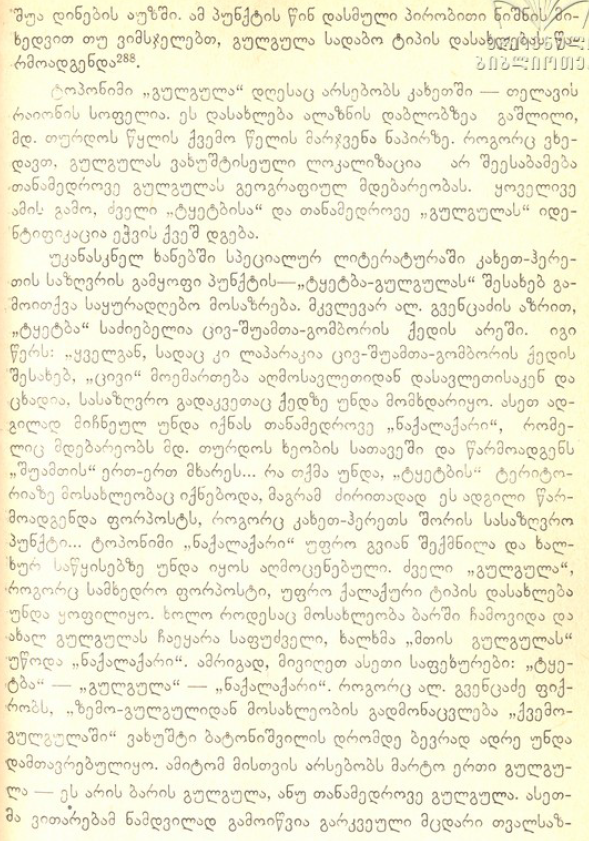 შუა დინების აუზში. ამ პუნქტის წინ დასმული პირობითი ნიშნის მი-
ხედვით თუ ვიმსჯელებთ, გულგულა სადაბო ტიპის დასახლებას წა-
რმოადგენდა²⁸⁸.
ტოპონიმი „გულგულა“ დღესაც არსებობს კახეთში — თელავის
რაიონის სოფელია. ეს დასახლება ალაზნის დაბლობზეა გაშლილი,
მდ. თურდოს წყლის ქვემო წელის მარჯვენა ნაპირზე. როგორც ვხე-
დავთ, გულგულას ვახუშტისეული ლოკალიზაცია არ შეესაბამება
თანამედროვე გულგულას გეოგრაფიულ მდებარეობას. ყოველივე
ამის გამო, ძველი „ტყეტბისა“ და თანამედროვე „გულგულას“ იდე-
ნტიფიკაცია ეჭვის ქვეშ დგება.
უკანასკნელ ხანებში სპეციალურ ლიტერატურაში კახეთ-ჰერე-
თის საზღვრის გამყოფი პუნქტის—„ტყეტბა-გულგულას“ შესახებ გა-
მოითქვა საყურადღებო მოსაზრება. მკვლევარ ალ. გვენცაძის აზრით,
„ტყეტბა“ საძიებელია ცივ-შუამთა-გომბორის ქედის არეში. იგი
წერს: „ყველგან, სადაც კი ლაპარაკია ცივ-შუამთა-გომბორის ქედის
შესახებ, „ცივი“ მოემართება აღმოსავლეთიდან დასავლეთისაკენ და
ცხადია, სასაზღვრო გადაკვეთაც ქედზე უნდა მომხდარიყო. ასეთ ად-
გილად მიჩნეულ უნდა იქნას თანამედროვე „ნაქალაქარი“, რომე-
ლიც მდებარეობს მდ. თურდოს ხეობის სათავეში და წარმოადგენს
„შუამთის“ ერთ-ერთ მხარეს... რა თქმა უნდა, „ტყეტბის“ ტერიტო-
რიაზე მოსახლეობაც იქნებოდა, მაგრამ ძირითადად ეს ადგილი წარ-
მოადგენდა ფორპოსტს, როგორც კახეთ-ჰერეთს შორის სასაზღვრო
პუნქტი... ტოპონიმი „ნაქალაქარი“ უფრო გვიან შექმნილა და ხალ-
ხურ საწყისებზე უნდა იყოს აღმოცენებული. ძველი „გულგულა“,
როგორც სამხედრო ფორპოსტი, უფრო ქალაქური ტიპის დასახლება
უნდა ყოფილიყო. ხოლო როდესაც მოსახლეობა ბარში ჩამოვიდა და
ახალ გულგულას ჩაეყარა საფუძველი, ხალხმა „მთის გულგულას“
უწოდა „ნაქალაქარი“. ამრიგად, მივიღეთ ასეთი საფეხურები: „ტყე-
ტბა“ — „გულგულა“ — „ნაქალაქარი“. როგორც ალ. გვენცაძე ფიქ-
რობს, „ზემო-გულგულიდან მოსახლეობის გადმონაცვლება „ქვემო-
გულგულაში“ ვახუშტი ბატონიშვილის დრომდე ბევრად ადრე უნდა
დამთავრებულიყო. ამიტომ მისთვის არსებობს მარტო ერთი გულგუ-
ლა — ეს არის ბარის გულგულა, ანუ თანამედროვე გულგულა. ასეთ-
მა ვითარებამ ნამდვილად გამოიწვია გარკვეული მცდარი თვალსაზ-